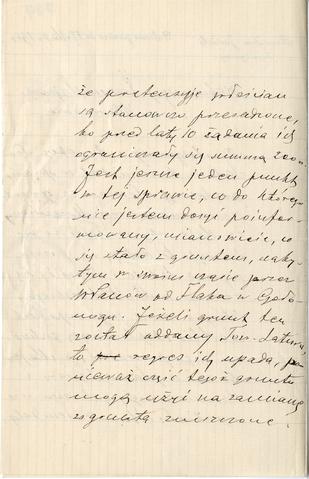 że pretensyje włościan
są stanowczo przesadzone,
bo przed laty 10 żądania ich
ograniczały się summą 200
Jest jeszcze jeden punkt
w tej sprawie, co do które
nie jestem dosyć poinfor-
mowany, mianowicie, co
się stało z gruntem, naby-
tym w swoim czasie przez
od Flaka w
Jeżeli grunt ten
został oddany Tow.
to regres ich upada, po
nieważ część tegoż gruntu
mogą użyć na zamianę
za grunta zniszczone.